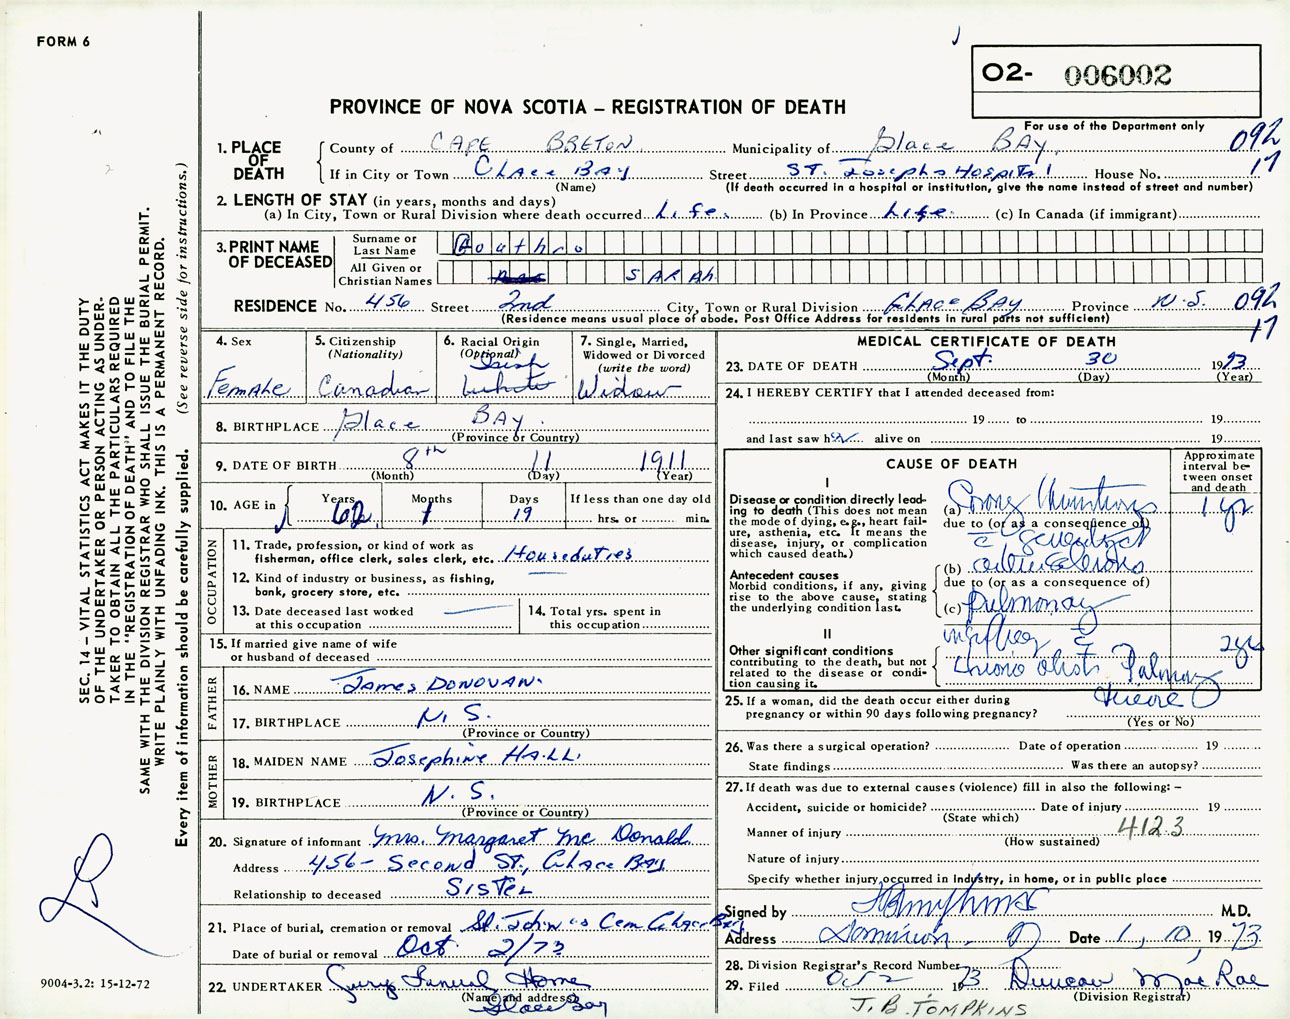 FORM 6
O2- 006002
For use of the Department only
PROVINCE OF NOVA SCOTIA – REGISTRATION OF DEATH
092
17
1. PLACE OF DEATH
County of CAPE BRETON Municipality of Glace BAY
If in City or Town Glace BAY Street ST. Josephs Hospital House No.
(Name) (If death occurred in a hospital or institution, give the name instead of street and number)
2. LENGTH OF STAY (in years, months and days)
(a) In City, Town or Rural Division where death occurred Life. (b) In Province Life. (c) In Canada (if immigrant)
3. PRINT NAME OF DECEASED
Surname or Last Name Gouthro
All Given or Christian Names SARAh
RESIDENCE No. 456 Street 2nd City, Town or Rural Division Glace BAY Province N.S. 092
17
(Residence means usual place of abode. Post Office Address for residents in rural parts not sufficient)
4. Sex Female
5. Citizenship (Nationality) Canadian
6. Racial Origin (Optional) Irish White
7. Single, Married, Widowed or Divorced (write the word) Widow
8. BIRTHPLACE Glace BAY.
(Province or Country)
9. DATE OF BIRTH 8th 11 1911
(Month) (Day) (Year)
10. AGE in Years 62 Months 1 Days 19 If less than one day old
hrs. or min.
OCCUPATION
11. Trade, profession, or kind of work as fisherman, office clerk, sales clerk, etc. Houseduties
12. Kind of industry or business, as fishing, bank, grocery store, etc.
13. Date deceased last worked at this occupation
14. Total yrs. spent in this occupation
15. If married give name of wife or husband of deceased
FATHER
16. NAME James DONOVAN.
17. BIRTHPLACE N.S.
(Province or Country)
MOTHER
18. MAIDEN NAME Josephine HALL.
19. BIRTHPLACE N.S.
(Province or Country)
20. Signature of informant Mrs. Margaret Mc Donald
Address 456 - Second St., Glace Bay
Relationship to deceased SISTER
21. Place of burial, cremation or removal St. John's Cem Glace Bay
Date of burial or removal Oct 2/73
22. UNDERTAKER Funeral Home
(Name and address) Glace Bay
MEDICAL CERTIFICATE OF DEATH
23. DATE OF DEATH Sept. 30 1973
(Month) (Day) (Year)
24. I HEREBY CERTIFY that I attended deceased from:
19 to 19
and last saw h alive on 19
CAUSE OF DEATH
Approximate interval between onset and death
I
Disease or condition directly leading to death (This does not mean the mode of dying, e.g., heart failure, asthenia, etc. It means the disease, injury, or complication which caused death.)
(a) 1 yr
due to (or as a consequence of)
Antecedent causes
Morbid conditions, if any, giving rise to the above cause, stating the underlying condition last.
(b)
due to (or as a consequence of)
(c) Pulmonary
II
Other significant conditions
contributing to the death, but not related to the disease or condition causing it.
25. If a woman, did the death occur either during pregnancy or within 90 days following pregnancy?
(Yes or No)
26. Was there a surgical operation? Date of operation 19
State findings Was there an autopsy?
27. If death was due to external causes (violence) fill in also the following: –
Accident, suicide or homicide? Date of injury 19
(State which)
Manner of injury 412.3
(How sustained)
Nature of injury
Specify whether injury occurred in industry, in home, or in public place
Signed by M.D.
Address Dominion. Date 1, 10, 1973
28. Division Registrar's Record Number
29. Filed Oct 2 1973 Duncan Mac Rae
(Division Registrar)
J.B. TOMPKINS
SEC. 14 – VITAL STATISTICS ACT MAKES IT THE DUTY
OF THE UNDERTAKER OR PERSON ACTING AS UNDER-
TAKER TO OBTAIN ALL THE PARTICULARS REQUIRED
IN THE "REGISTRATION OF DEATH" AND TO FILE THE
SAME WITH THE DIVISION REGISTRAR WHO SHALL ISSUE THE BURIAL PERMIT.
WRITE PLAINLY WITH UNFADING INK. THIS IS A PERMANENT RECORD.
Every item of information should be carefully supplied. (See reverse side for instructions.)
9004-3.2: 15-12-72